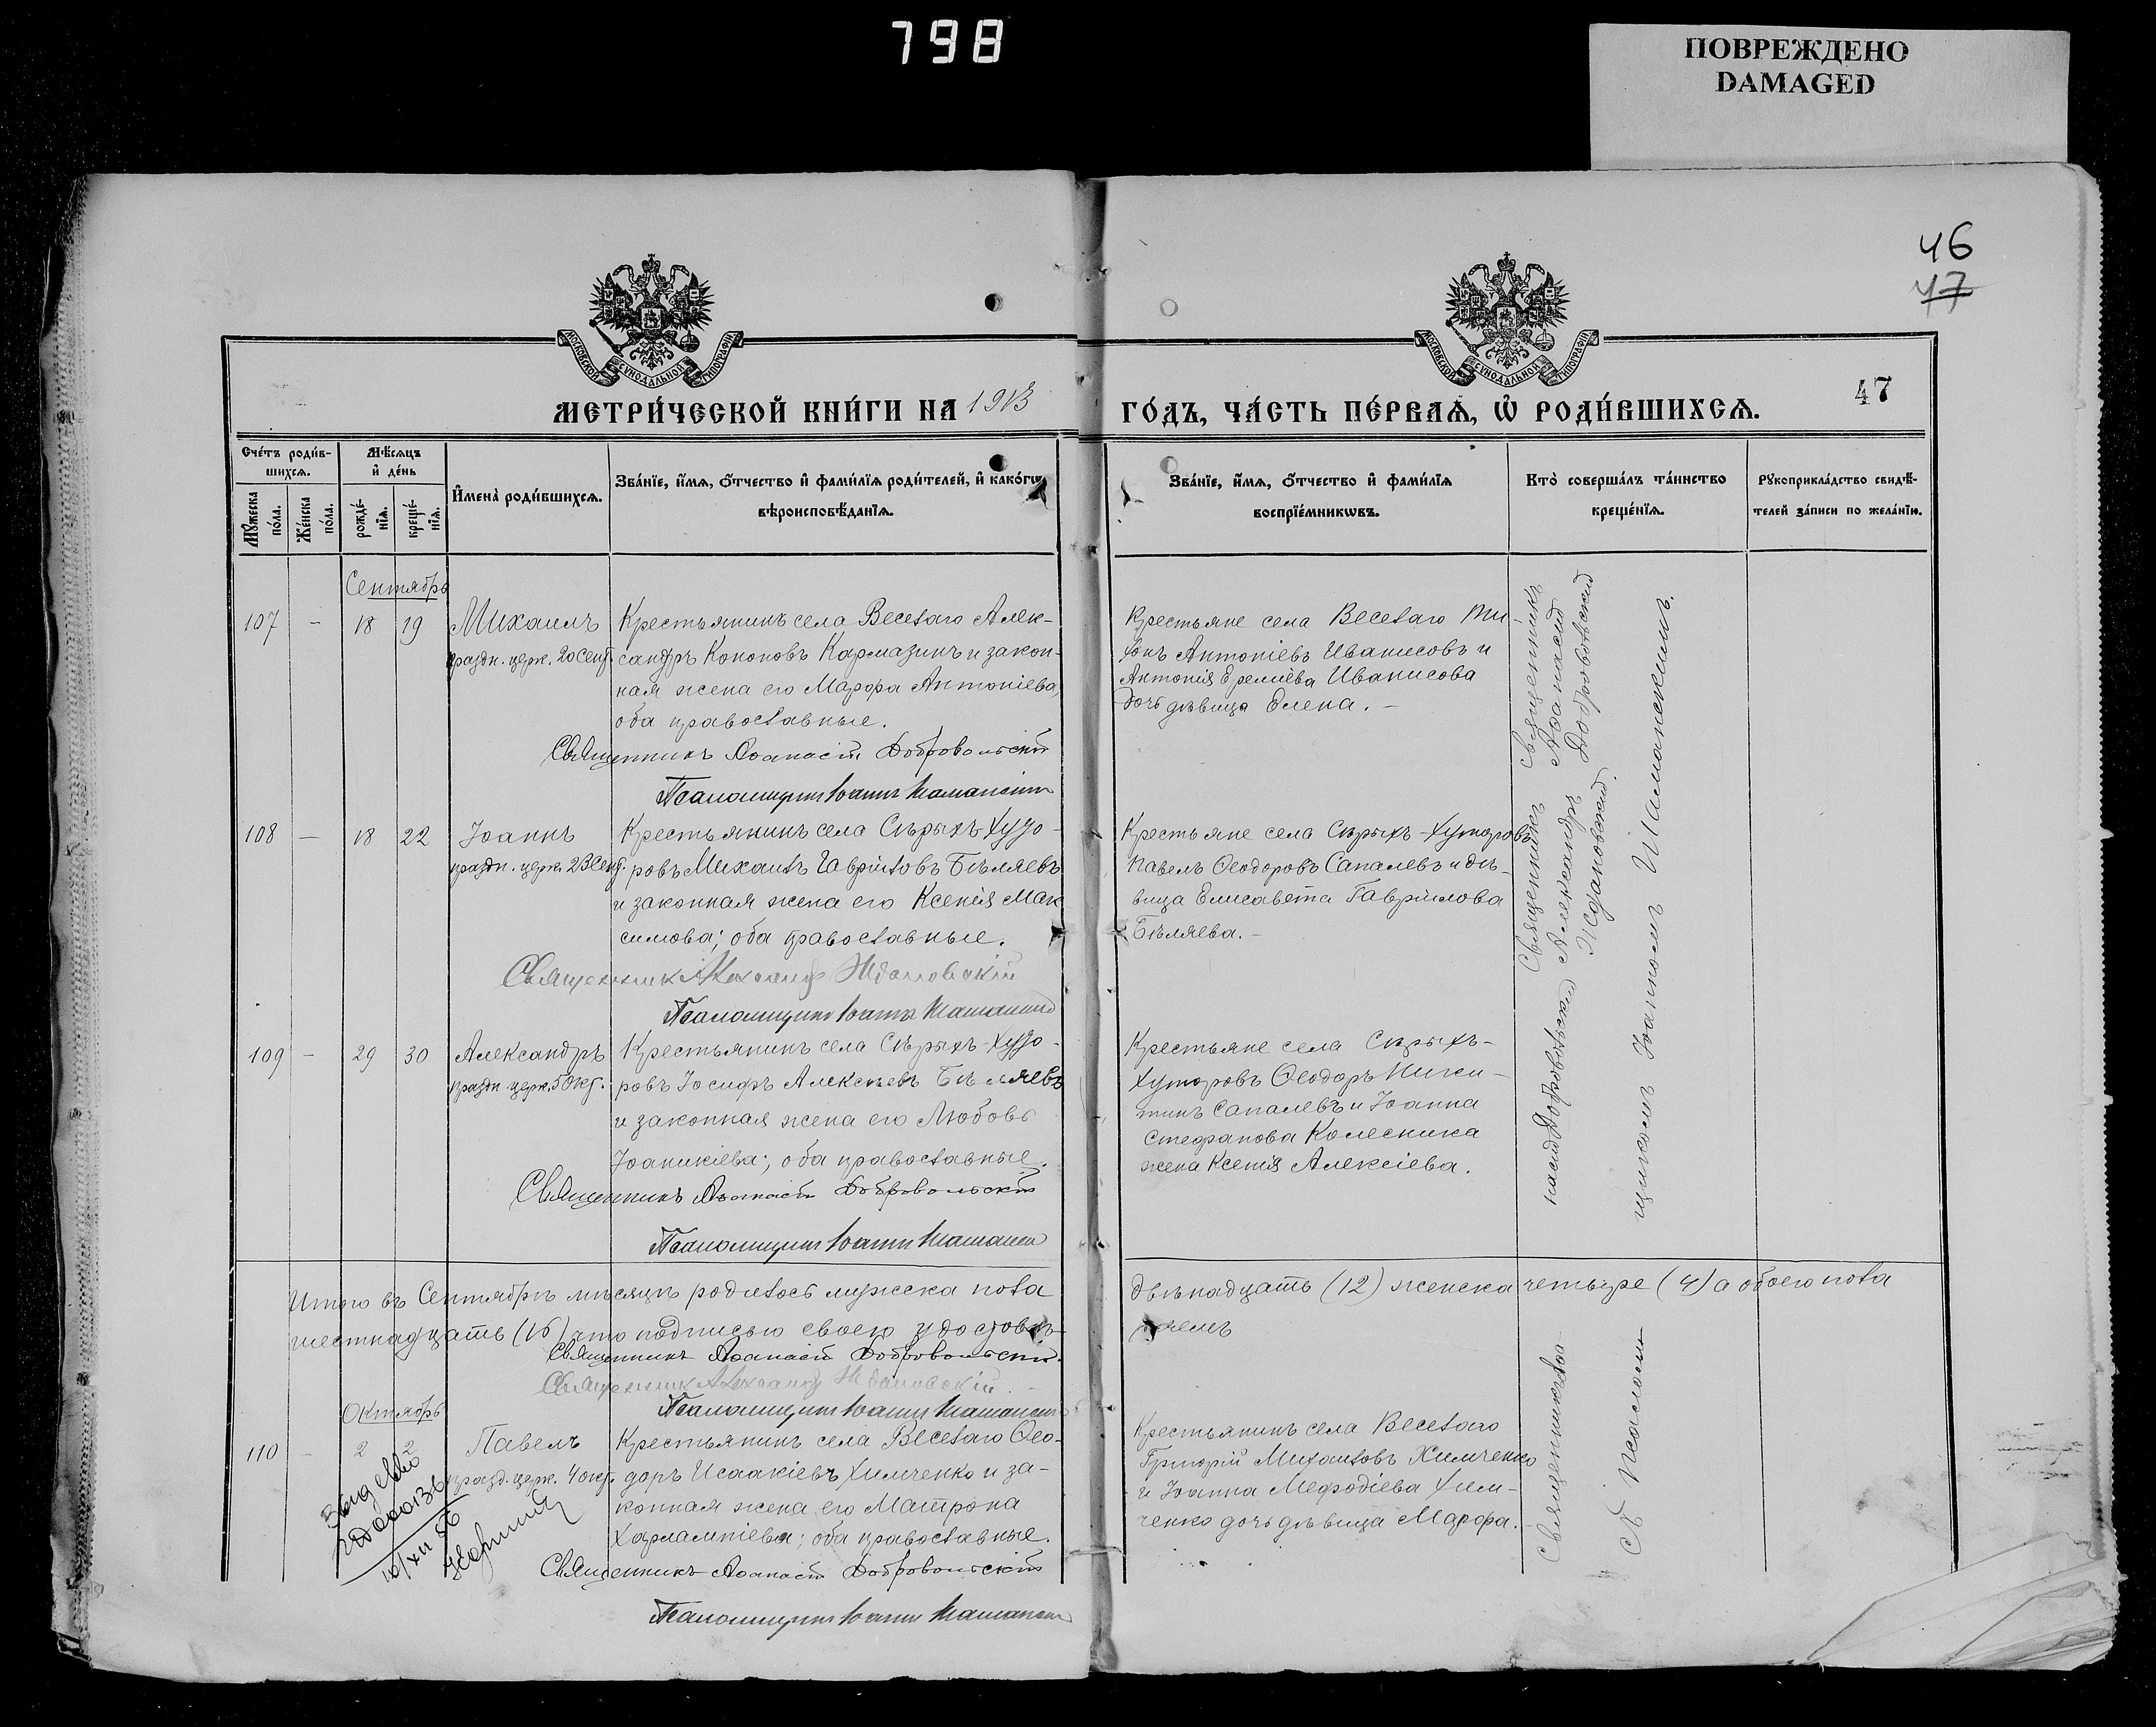 798
ПОВРЕЖДЕНО
DAMAGED
46
47
МОСКОВСКОЙ СѴНОДАЛЬНОЙ ТИПОГРАФІИ
МОСКОВСКОЙ СѴНОДАЛЬНОЙ ТИПОГРАФІИ
МЕТРИ́ЧЕСКОЙ КНИ́ГИ НА 1913
ГО́ДЪ, ЧА́СТЬ ПЕ́РВАѦ, Ѡ҆ РОДИ́ВШИХСѦ.
47
Сче́тъ роди́в-
шихсѧ.
Мꙋ́жеска
по́ла.
Же́нска
по́ла.
Мѣ́сѧцъ
и҆ де́нь
рожде́-
нїѧ.
креще́-
нїѧ.
И҆мена̀ роди́вшихсѧ.
Зва́нїе, и҆́мѧ, ѻ҆́тчество и҆ фами́лїѧ роди́телей, и҆ како́гѡ
вѣроисповѣ́данїѧ.
Зва́нїе, и҆́мѧ, ѻ҆́тчество и҆ фами́лїѧ
воспрїе́мникѡвъ.
Кто̀ соверша́лъ та́инство
креще́нїѧ.
Рꙋкоприкла́дство свидѣ́-
телей за́писи по жела́нїю.
Сентябрь
107 – 18 19 Михаилъ
праздн. церк. 20 Сент.
Крестьянинъ села Веселаго Алек-
сандръ Кононовъ Кармазинъ и закон-
ная жена его Марфа Антоніева,
оба православные.
Священникъ Аѳанасій Добровольскій
Псаломщикъ Іоаннъ Шаманскій
Крестьяне села Веселаго Ти-
хонъ Антоніевъ Иванисовъ и
Антонія Еремiева Иванисова
дочь дѣвица Елена. –
Священникъ
Аѳанасій
Добровольскій
108 – 18 22 Іоаннъ
праздн. церк. 23 Сент.
Крестьянинъ села Сѣрыхъ-Хуто-
ровъ Михаилъ Гавріиловъ Бѣляевъ
и законная жена его Ксенія Мак
симова; оба православные.
Священник Александр Ждановскій
Псаломщикъ Іоаннъ Шаманскій
Крестьяне села Сѣрыхъ-Хуторовъ
Павелъ Ѳеодоровъ Сапалевъ и дѣ-
вица Елисавета Гавріилова
Бѣляева. –
Священникъ
Александръ
Ждановскій.
109 – 29 30 Александръ
праздн. церк. 5 Окт.
Крестьянинъ села Сѣрыхъ-Хуто-
ровъ Іосифъ Алексѣевъ Бѣляевъ
и законная жена его Любовь
Іоаникіева; оба православные.
Священникъ Аѳанасій Добровольскій
Псаломщикъ Іоаннъ Шаманскій
Крестьяне села Сѣрыхъ-
Хуторовъ Ѳеодоръ Ники-
тинъ Сапалевъ и Іоанна
Стефанова Колесника
жена Ксенія Алексіева.
насій Добровольскій
щикомъ Іоанномъ Шаманскимъ.
Итого въ Сентябрѣ мѣсяцѣ родилось мужеска пола
двѣнадцать (12) женска четыре (4) а обоего пола
шестнадцать (16) что подписью своею удостовѣ-
ряемъ
Священникъ Аѳанасій Добровольскій.
Священник Александр Ждановскій.
Псаломщикъ Іоаннъ Шаманскій
Октябрь
110 – 2 2 Павелъ
празд. церк. 4 окт.
Крестьянинъ села Веселаго Ѳео-
доръ Исаакіевъ Химченко и за-
конная жена его Матрона
Харлампіева; оба православные.
Священникъ Аѳанасій Добровольскій
Псаломщикъ Іоаннъ Шаманскій
10/XII 56
Крестьянинъ села Веселаго
Григорій Михаиловъ Химченко
и Іоанна Меѳодіева Хим-
ченко дочь дѣвица Марфа.
Священникъ Аѳа-
съ Псалом-